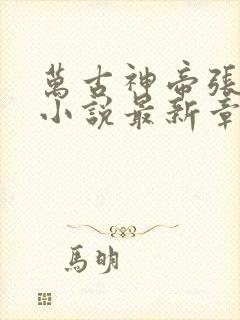 萬古神帝張
小說最新章
馬明